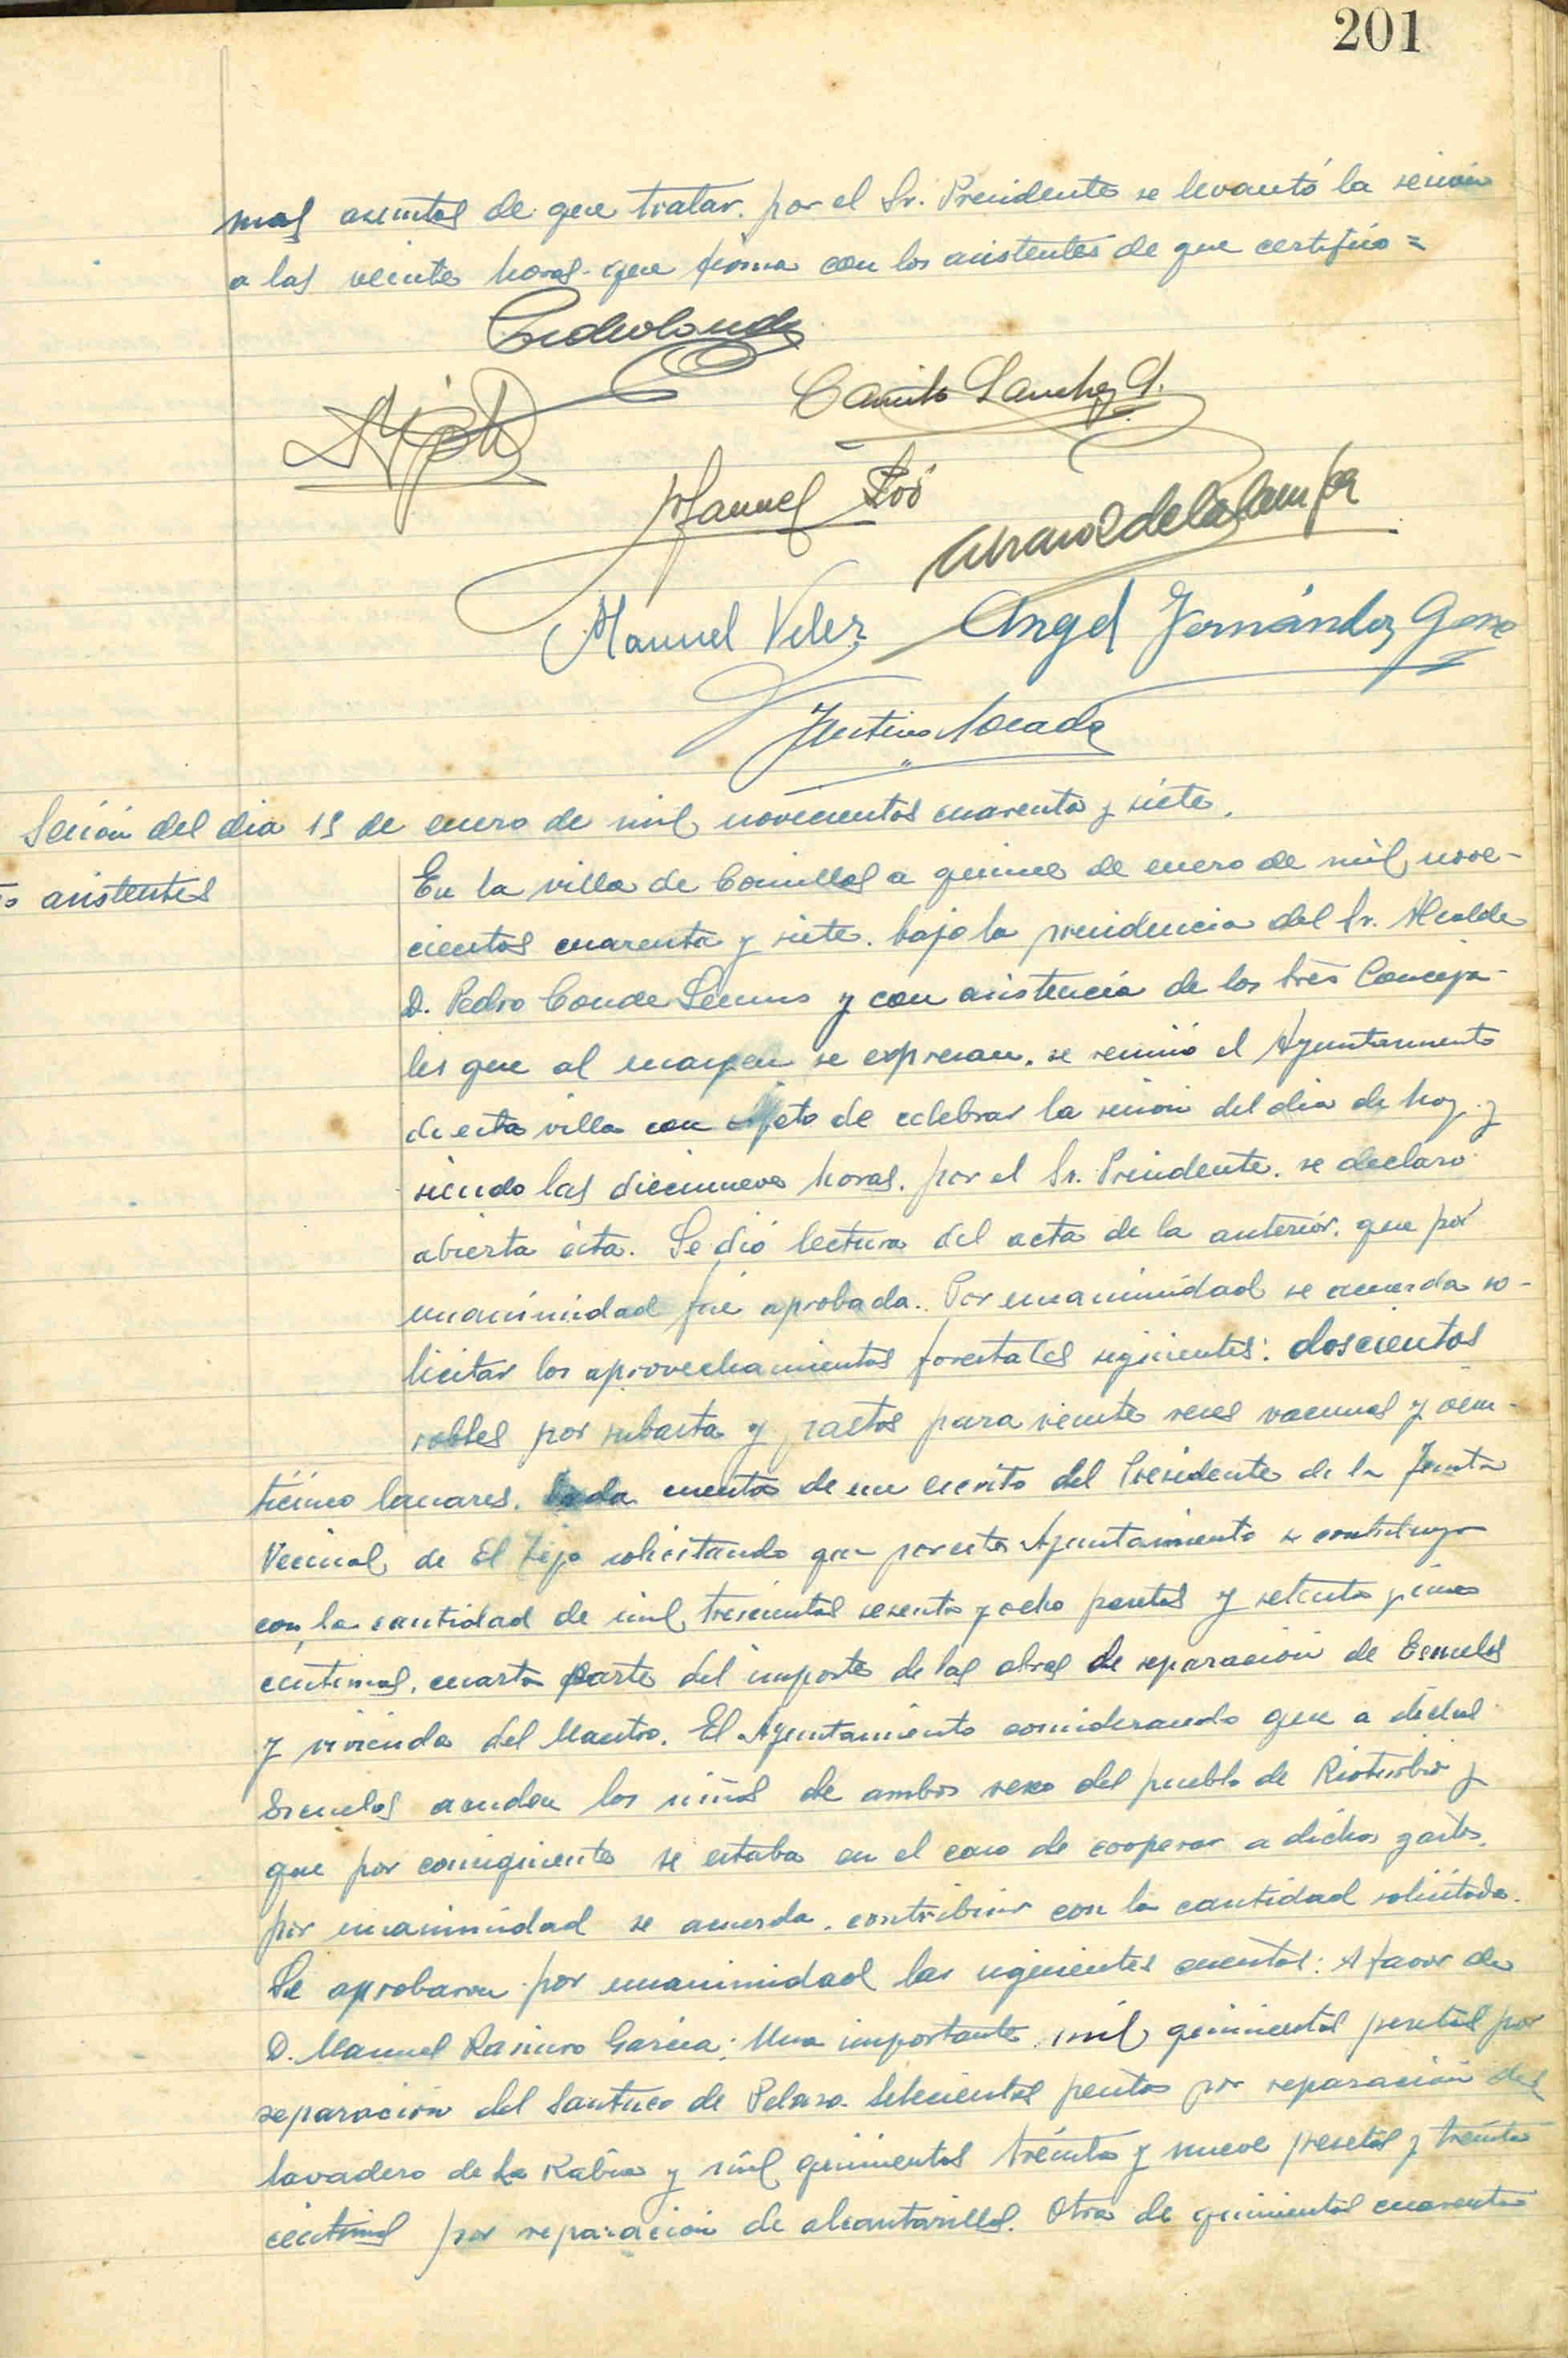 201
mas asuntos de que tratar. por el Sr. Presidente se levantó la sesión
a las veinte horas que firma con los asistentes de que certifico =
Pedro Conde
Camilo Sanchez
Manuel
Manuel Velez Angel Fernández
Sesión del dia 15 de enero de mil novecientos cuarenta y siete.
asistentes
En la villa de Comillas a quince de enero de mil nove-
cientos cuarenta y siete. bajo la presidencia del Sr. Alcalde
D. Pedro Conde Lecuna y con asistencia de los tres Conceja-
les que al margen se expresan. se reunió el Ayuntamiento
de esta villa con objeto de celebrar la sesión del dia de hoy. y
siendo las diecinueve horas. por el Sr. Presidente. se declaro
abierta ésta. Se dió lectura del acta de la anterior. que por
unanimidad fué aprobada. Por unanimidad se acuerda so-
licitar los aprovechamientos forestales siguientes: doscientos
robles por subasta y pastos para veinte reses vacunas y
lanares. Dada cuenta de un escrito del Presidente de la Junta
Vecinal de El Tejo solicitando que por este Ayuntamiento se contribuya
con la cantidad de mil trescientas sesenta y ocho pesetas y setenta y cinco
centimos. cuarta parte del importe de las obras de reparación de Escuelas
y vivienda del Maestro. El Ayuntamiento considerando que a dichas
Escuelas acuden los niños de ambos sexos del pueblo de Rioturbio y
que por consiguiente se estaba en el caso de cooperar a dichos gastos.
por unanimidad se acuerda. contribuir con la cantidad solicitada.
Se aprobaron por unanimidad las siguientes cuentas: A favor de
D. Manuel Ramiro Garcia: Una importante mil quinientas pesetas por
reparación del Santuco de Pelaro. Setecientas pesetas por reparación del
lavadero de La Rabia y mil quinientas treinta y nueve pesetas y treinta
centimos por reparación de alcantarillas. Otra de quinientas cuarenta